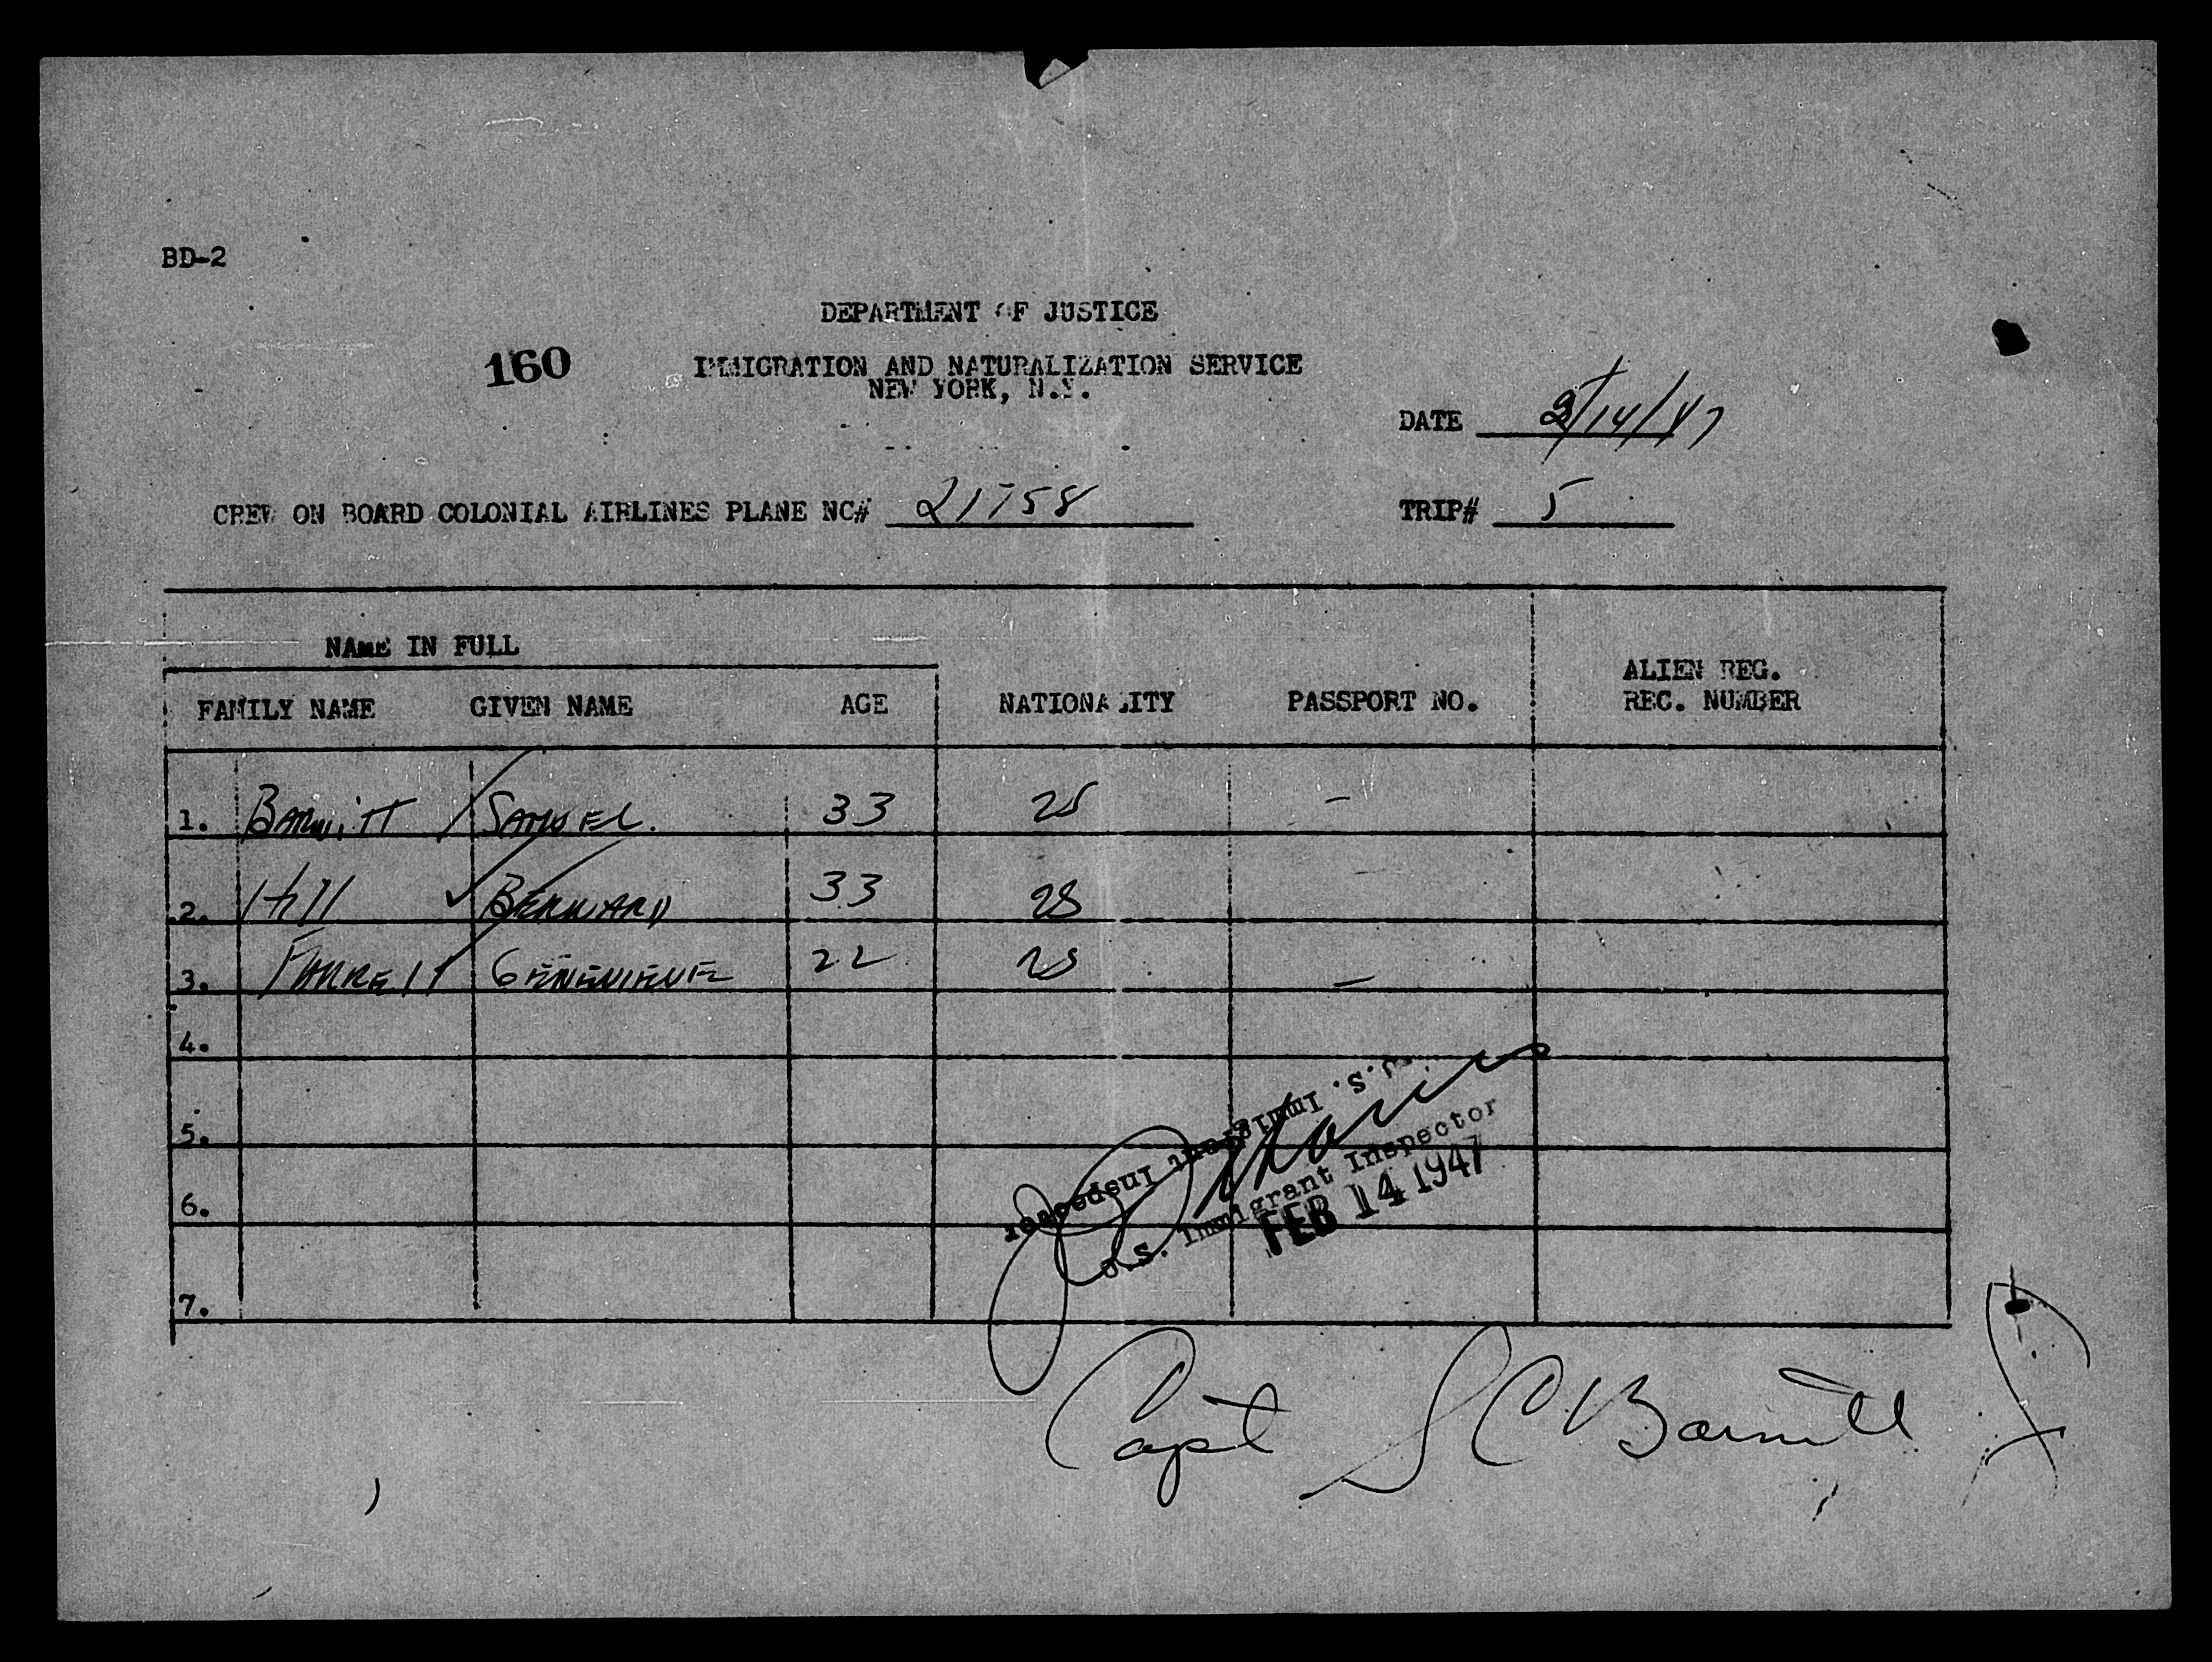 BD-2
DEPARTMENT OF JUSTICE
160
IMMIGRATION AND NATURALIZATION SERVICE
NEW YORK, N.Y.
DATE 2/14/47
CREW ON BOARD COLONIAL AIRLINES PLANE NC# 21758
TRIP# 5
NAME IN FULL
FAMILY NAME GIVEN NAME AGE NATIONALITY PASSPORT NO. ALIEN REG. REC. NUMBER
1. BARNITT SAMUEL. 33 US —
2. Hill BERNARD 33 US
3. FARRELL GENEVIEVE 22 US —
4.
5.
6.
7.
U.S. Immigrant Inspector
U.S. Immigrant Inspector
FEB 14 1947
Capt S C Barnitt